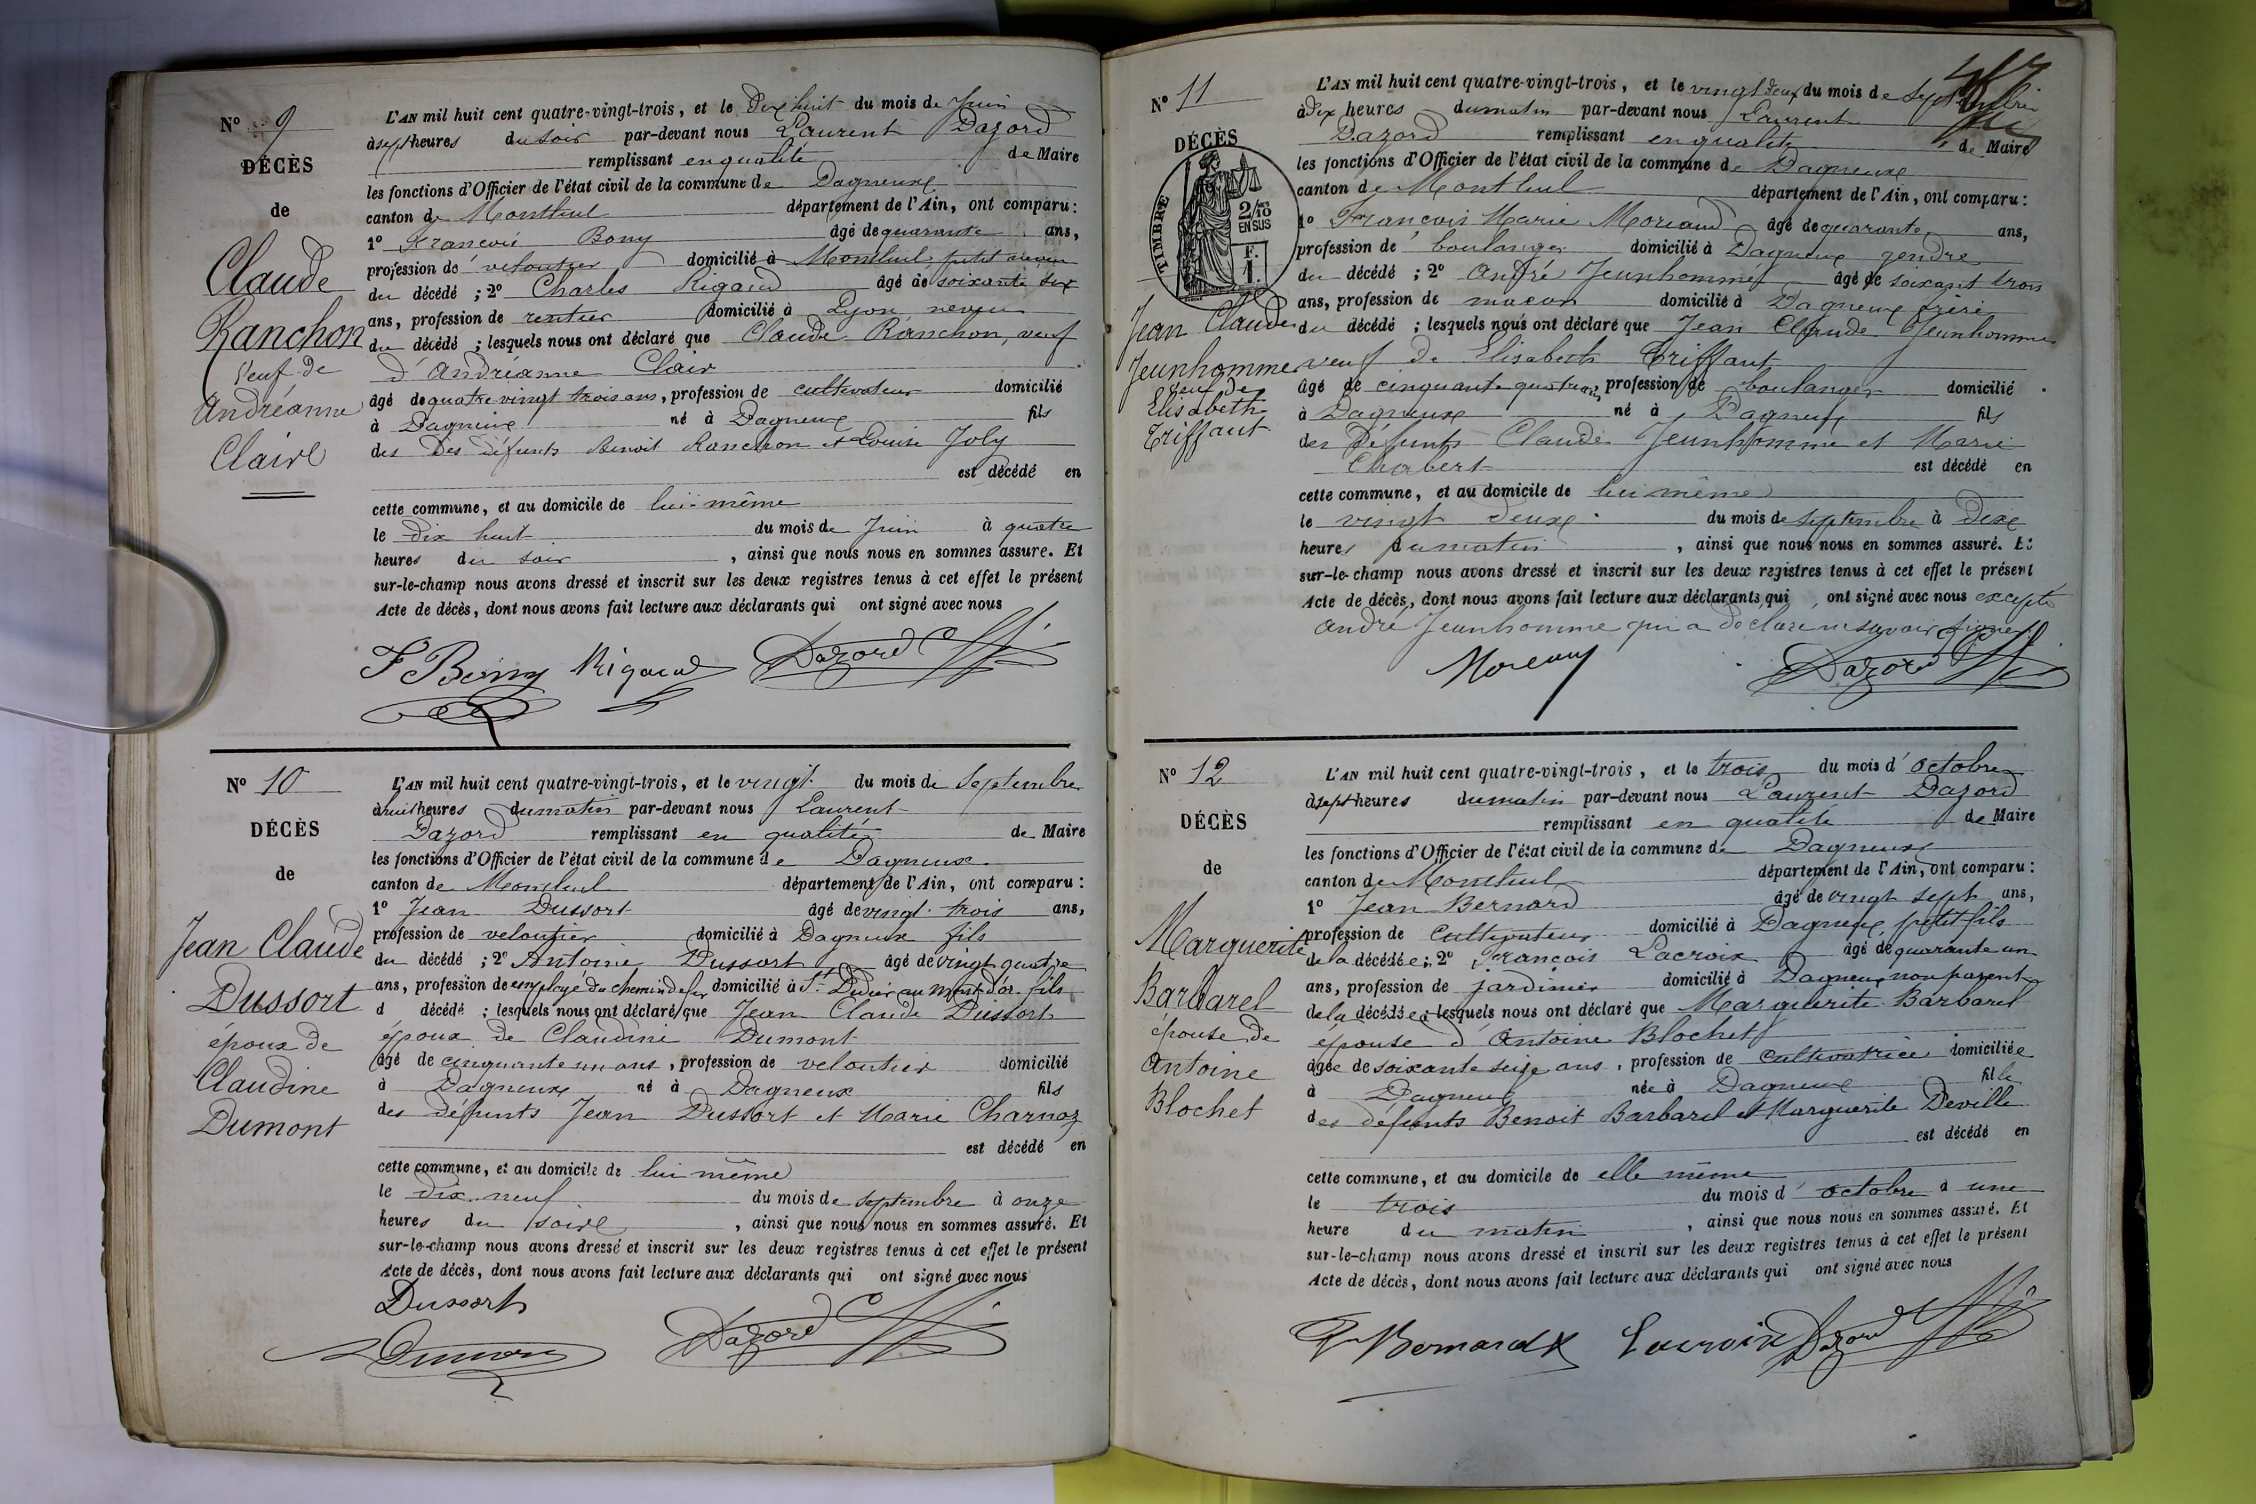 N° 9
DÉCÈS
de
Claude
Ranchon
veuf de
Andréanne
Claire
L'AN mil huit cent quatre-vingt-trois, et le dix huit du mois de Juin
à sept heures du soir par-devant nous Laurent Dazord
remplissant en qualité de Maire
les fonctions d'Officier de l'état civil de la commune de Dagneux
canton de Montluel département de l'Ain, ont comparu :
1° François Bony âgé de quarante ans,
profession de veloutier domicilié à Montluel petit neveu
du décédé ; 2° Charles Rigaud âgé de soixante six
ans, profession de rentier domicilié à Lyon, neveu
du décédé ; lesquels nous ont déclaré que Claude Ranchon, veuf
d'Andréanne Clair
âgé de quatre vingt trois ans, profession de cultivateur domicilié
à Dagneux né à Dagneux fils
des Des défunts Benoit Ranchon et Louise Joly
est décédé en
cette commune, et au domicile de lui-même
le dix huit du mois de Juin à quatre
heures du soir, ainsi que nous nous en sommes assuré. Et
sur-le-champ nous avons dressé et inscrit sur les deux registres tenus à cet effet le présent
Acte de décès, dont nous avons fait lecture aux déclarants qui ont signé avec nous
F Bony Rigaud Dazord
N° 10
DÉCÈS
de
Jean Claude
Dussort
époux de
Claudine
Dumont
L'AN mil huit cent quatre-vingt-trois, et le vingt du mois de Septembre
à huit heures du matin par-devant nous Laurent
Dazord remplissant en qualité de Maire
les fonctions d'Officier de l'état civil de la commune de Dagneux
canton de Montluel département de l'Ain, ont comparu :
1° Jean Dussort âgé de vingt-trois ans,
profession de veloutier domicilié à Dagneux fils
du décédé ; 2° Antoine Dussort âgé de vingt quatre
ans, profession de employé du chemin de fer domicilié à St Didier au Mont d'or fils
d décédé ; lesquels nous ont déclaré que Jean Claude Dussort
époux de Claudine Dumont
âgé de cinquante un ans, profession de veloutier domicilié
à Dagneux né à Dagneux fils
des défunts Jean Dussort et Marie Charnoz
est décédé en
cette commune, et au domicile de lui même
le dix-neuf du mois de septembre à onze
heures du soire, ainsi que nous nous en sommes assuré. Et
sur-le-champ nous avons dressé et inscrit sur les deux registres tenus à cet effet le présent
Acte de décès, dont nous avons fait lecture aux déclarants qui ont signé avec nous
Dussort
Dazord
N° 11
DÉCÈS
TIMBRE
2/10
EN SUS
F.
1.
Jean Claude
Jeunhomme
veuf de
Elisabeth
Triffaut
L'AN mil huit cent quatre-vingt-trois, et le vingt deux du mois de septembre
à dix heures du matin par-devant nous Laurent
Dazord remplissant en qualité de Maire
les fonctions d'Officier de l'état civil de la commune de Dagneux
canton de Montluel département de l'Ain, ont comparu :
1° François Marie Moreaud âgé de quarante ans,
profession de boulanger domicilié à Dagneux gendre
du décédé ; 2° André Jeunhomme âgé de soixant trois
ans, profession de maçon domicilié à Dagneux frère
du décédé ; lesquels nous ont déclaré que Jean Claude Jeunhomme
veuf de Elisabeth Triffaut
âgé de cinquante quatre ans, profession de boulanger domicilié
à Dagneux né à Dagneux fils
des défunts Claude Jeunhomme et Marie
Chabert est décédé en
cette commune, et au domicile de lui même
le vingt deux du mois de septembre à deux
heures du matin, ainsi que nous nous en sommes assuré. Et
sur-le-champ nous avons dressé et inscrit sur les deux registres tenus à cet effet le présent
Acte de décès, dont nous avons fait lecture aux déclarants qui ont signé avec nous excepté
André Jeunhomme qui a déclaré ne savoir signer
Dazord
N° 12
DÉCÈS
de
Marguerite
Barbarel
épouse de
Antoine
Blochet
L'AN mil huit cent quatre-vingt-trois, et le trois du mois d'octobre
à sept heures du matin par-devant nous Laurent Dazord
remplissant en qualité de Maire
les fonctions d'Officier de l'état civil de la commune de Dagneux
canton de Montluel département de l'Ain, ont comparu :
1° Jean Bernard âgé de vingt sept ans,
profession de cultivateur domicilié à Dagneux, petit fils
de la décédée ; 2° François Lacroix âgé de quarante un
ans, profession de jardinier domicilié à Dagneux non parent
de la décédée lesquels nous ont déclaré que Marguerite Barbarel
épouse d'Antoine Blochet
âgée de soixante seize ans, profession de cultivatrice domiciliée
à Dagneux née à Dagneux fille
des défunts Benoit Barbarel et Marguerite Deville
est décédé en
cette commune, et au domicile de elle même
le trois du mois d'octobre à une
heure du matin, ainsi que nous nous en sommes assuré. Et
sur-le-champ nous avons dressé et inscrit sur les deux registres tenus à cet effet le présent
Acte de décès, dont nous avons fait lecture aux déclarants qui ont signé avec nous
Bernard Lacroix Dazord